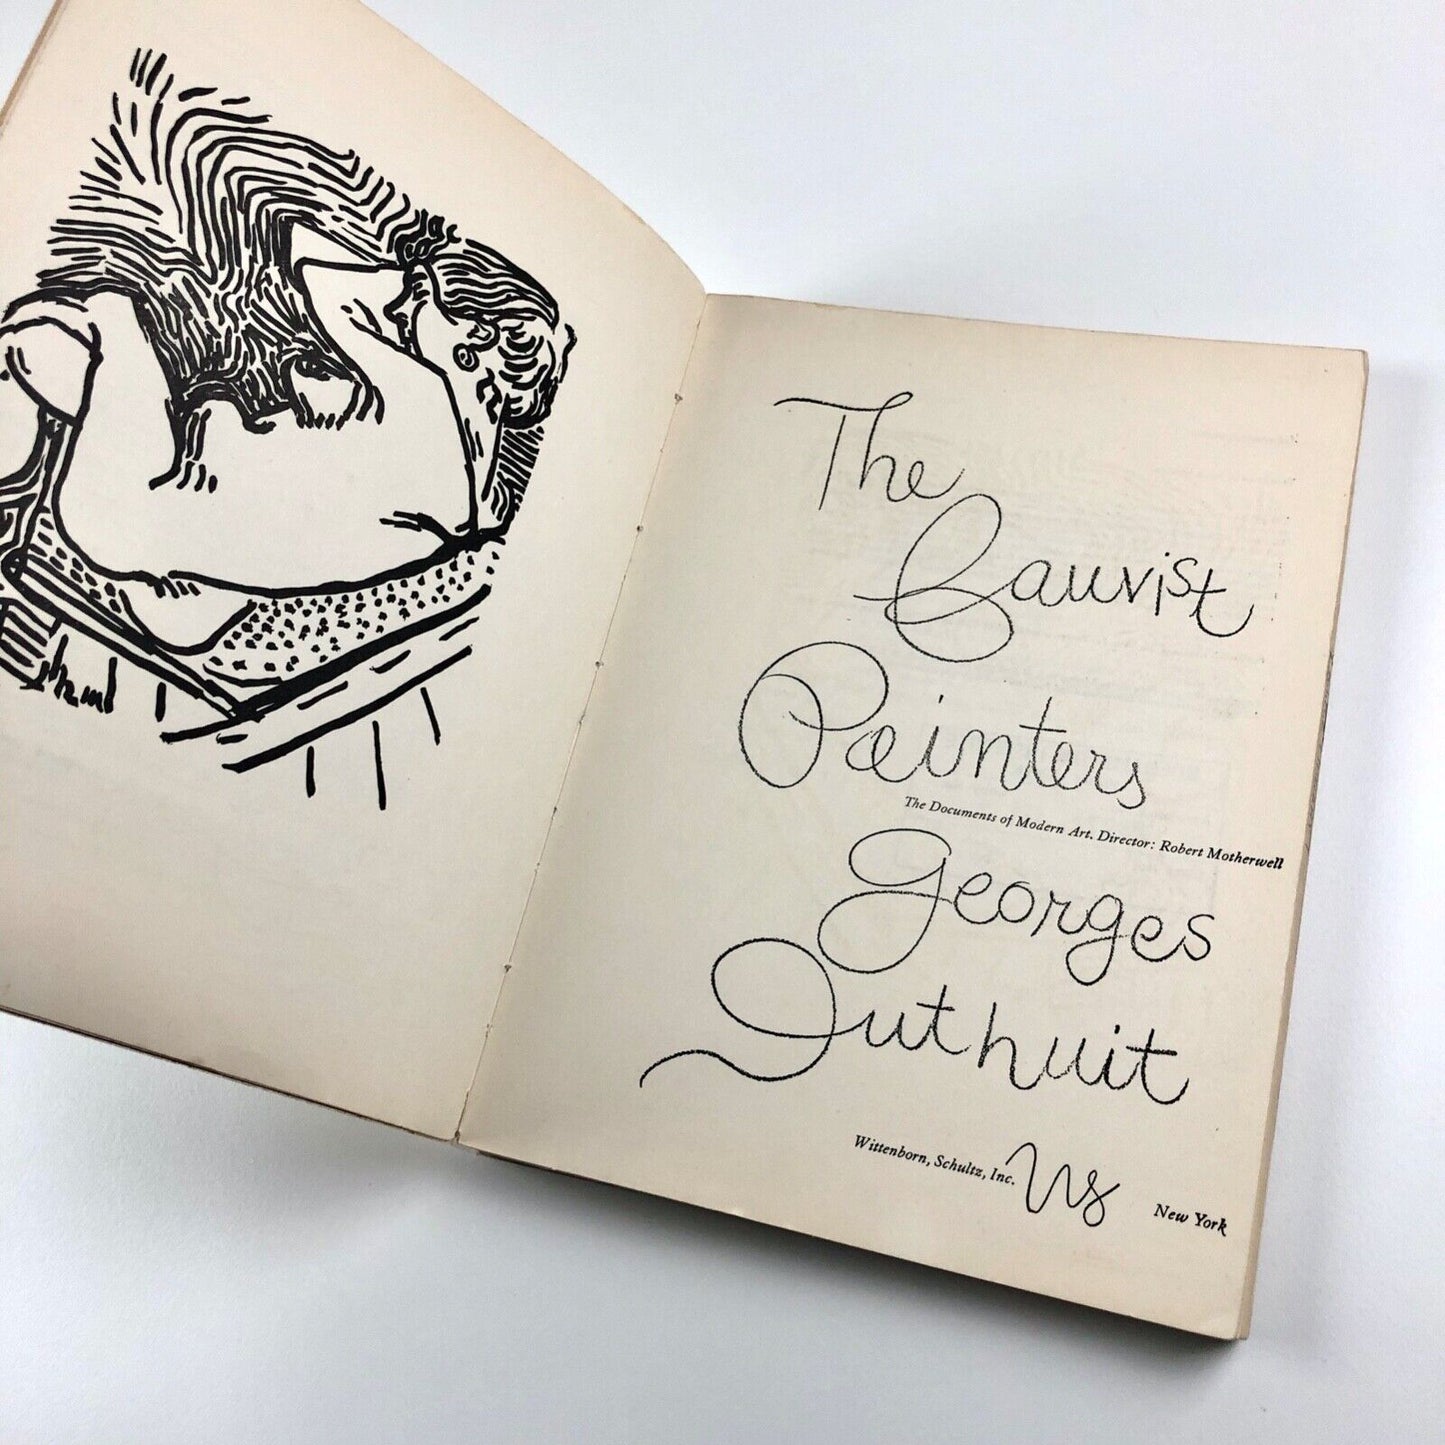 The
Fauvist
Painters
The Documents of Modern Art. Director: Robert Motherwell
Georges
Duthuit
Wittenborn, Schultz, Inc. WS New York